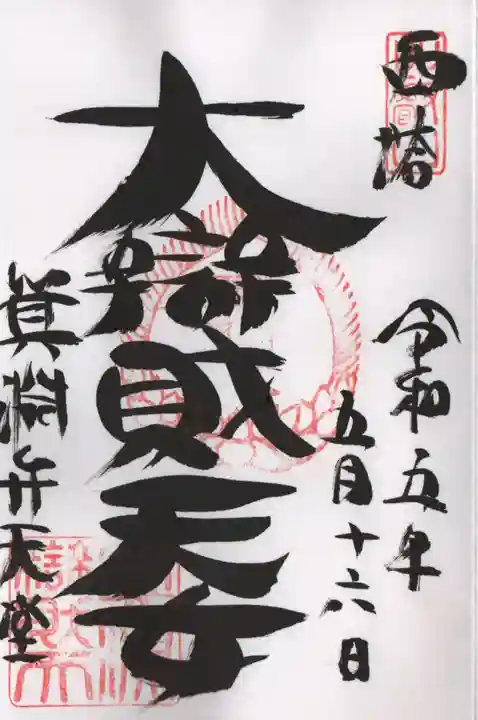 西塔
令和五年
五月十六日
大辯財天女
箕淵弁天堂